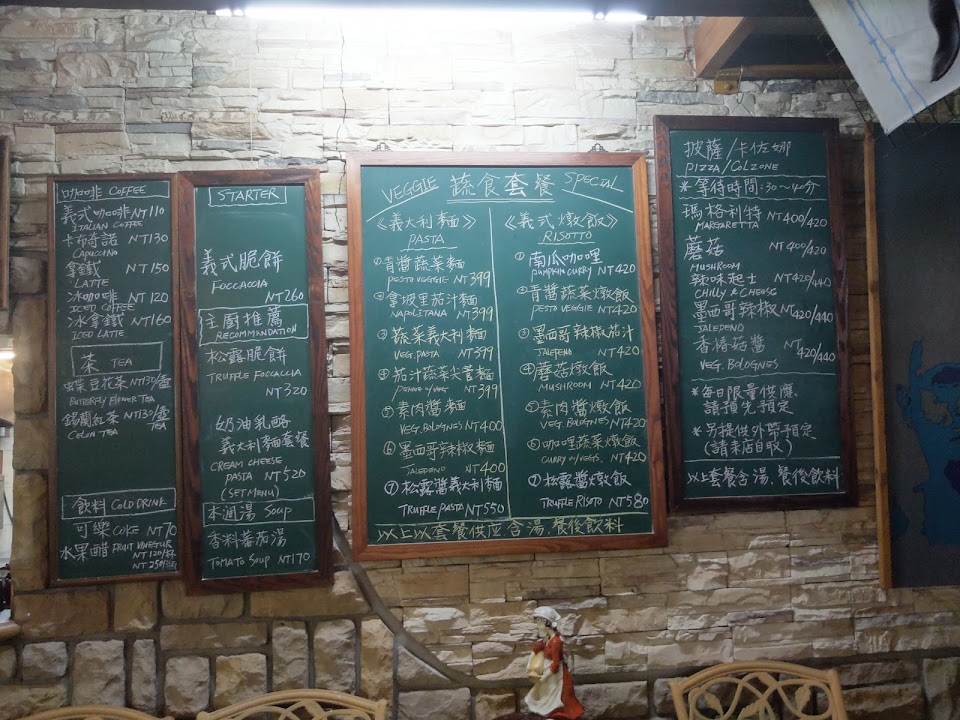 咖啡 COFFEE
義式咖啡 NT110
ITALIAN COFFEE
卡布奇諾 NT130
CAPUCCINO
拿鐵 NT150
LATTE
冰咖啡 NT120
ICED COFFEE
冰拿鐵 NT160
ICED LATTE
茶 TEA
蝶豆花茶 NT130/壺
BUTTERFLY FLOWER TEA
錫蘭紅茶 NT130/壺
CELUN TEA
飲料 COLD DRINK
可樂 COKE NT70
水果醋 FRUIT VINEGUR
NT120/杯
NT250/
STARTER
義式脆餅
FOCCACCIA
NT260
主廚推薦
RECOMMANDATION
松露脆餅
TRUFFLE FOCCALLIA
NT320
奶油乳酪
義大利麵套餐
CREAM CHEESE
PASTA NT520
(SET MENU)
本週湯 SOUP
香料蕃茄湯
TOMATO SOUP NT170
VEGGIE 蔬食套餐 SPECIAL
《義大利麵》
PASTA
① 青醬蔬菜麵
PESTO VEGGIE NT399
② 拿坡里茄汁麵
NAPOLITANA NT399
③ 蔬菜義大利麵
VEG. PASTA NT399
④ 茄汁蔬菜尖管麵
NT399
⑤ 素肉醬麵
VEG. BOLOGNES NT400
⑥ 墨西哥辣椒麵
JALEPENO NT400
⑦ 松露醬義大利麵
TRUFFLE PASTA NT550
《義式燉飯》
RISOTTO
① 南瓜咖哩
PUMPKIN CURRY NT420
② 青醬蔬菜燉飯
PESTO VEGGIE NT420
③ 墨西哥辣椒茄汁
JALEPENO NT420
④ 蘑菇燉飯
MUSHROOM NT420
⑤ 素肉醬燉飯
VEG. BOLOGNES NT420
⑥ 咖哩蔬菜燉飯
CURRY W/VEGS. NT420
⑦ 松露醬燉飯
TRUFFLE RISOTO NT580
以上以套餐供应含湯.餐後飲料
披薩/卡佐娜
PIZZA/COLZONE
*等待時間:30～40分
瑪格利特 NT400/420
MARGARETTA
蘑菇 NT400/420
MUSHROOM
辣味起士 NT420/440
CHILLY & CHEESE
墨西哥辣椒 NT420/440
JALEPENO
香椿菇醬 NT420/440
VEG. BOLOGNES
*每日限量供應,
請預先預定
*另提供外帶預定
(請來店自取)
以上套餐含湯.餐後飲料